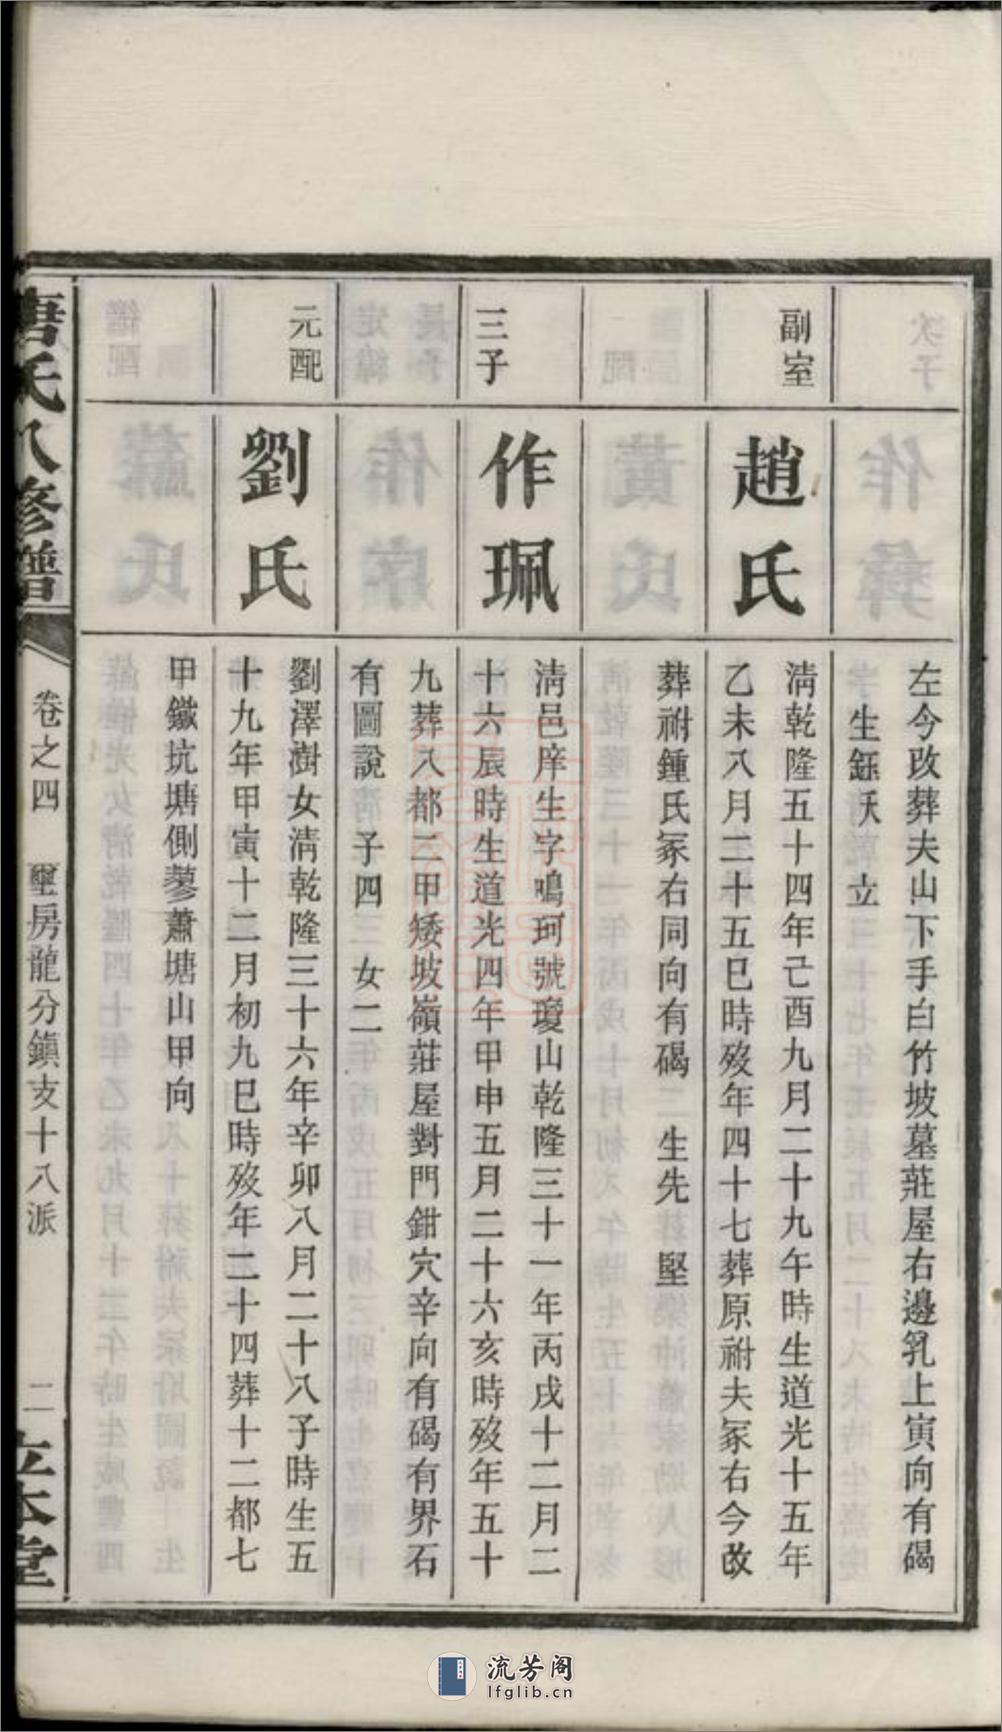 左今改葬夫山下手白竹坡墓莊屋右邊乳上寅向有碣
生鈺殀 立
副室
趙氏
淸乾隆五十四年己酉九月二十九午時生道光十五年
乙未八月二十五巳時歿年四十七葬原祔夫冢右今改
葬祔鍾氏冢右同向有碣 生先 堅
三子
作珮
淸邑庠生字鳴珂號瓊山乾隆三十一年丙戌十二月二
十六辰時生道光四年甲申五月二十六亥時歿年五十
九葬八都二甲矮坡嶺莊屋對門鉗穴辛向有碣有界石
有圖說 子四 女二
元配
劉氏
劉澤澍女淸乾隆三十六年辛卯八月二十八子時生五
十九年甲寅十二月初九巳時歿年二十四葬十二都七
甲鐵坑塘側蓼蕭塘山甲向
唐氏八修譜
卷之四 璽房龍分鎮支十八派
二
立本堂
流芳阁
lfglib.cn